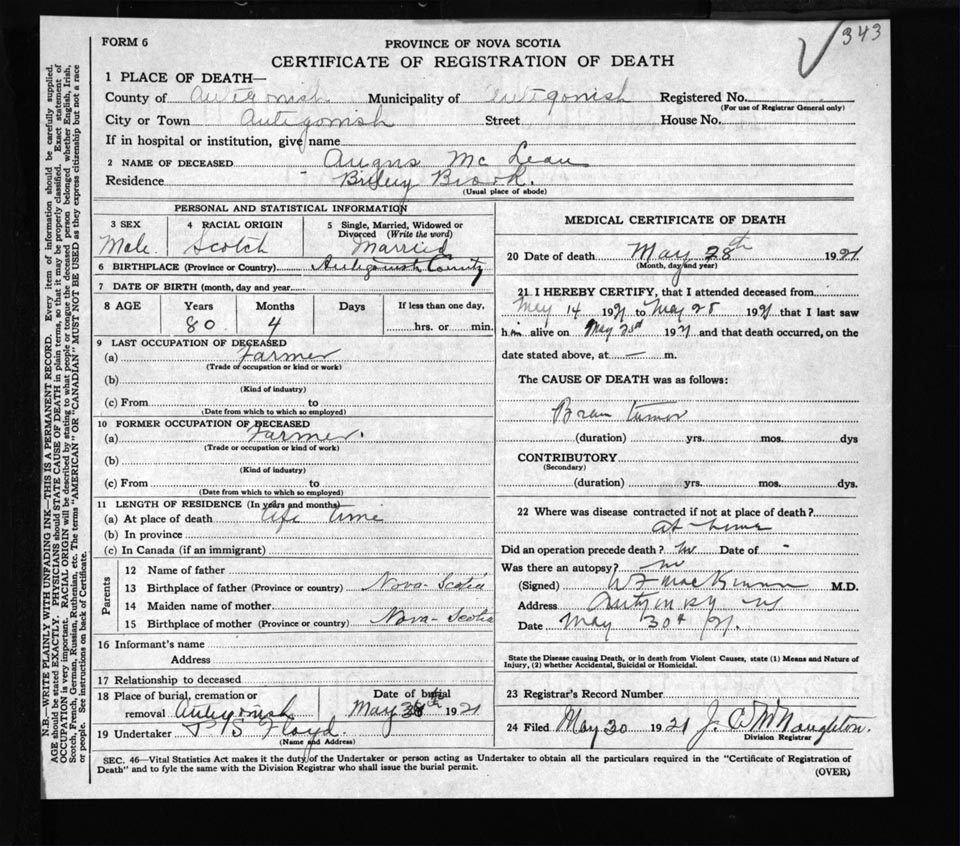 343
FORM 6
PROVINCE OF NOVA SCOTIA
CERTIFICATE OF REGISTRATION OF DEATH
1 PLACE OF DEATH—
County of Antigonish Municipality of Antigonish Registered No.
(For use of Registrar General only)
City or Town Antigonish Street House No.
If in hospital or institution, give name
2 NAME OF DECEASED Angus Mc Lean
Residence Briley Brook.
(Usual place of abode)
PERSONAL AND STATISTICAL INFORMATION
3 SEX 4 RACIAL ORIGIN 5 Single, Married, Widowed or
Divorced (Write the word)
Male. Scotch Married
6 BIRTHPLACE (Province or Country) Antigonish County
7 DATE OF BIRTH (month, day and year)
8 AGE Years Months Days If less than one day,
80 4 hrs. or min.
9 LAST OCCUPATION OF DECEASED
(a) Farmer
(Trade or occupation or kind or work)
(b)
(Kind of industry)
(c) From to
(Date from which to which so employed)
10 FORMER OCCUPATION OF DECEASED
(a) Farmer.
(Trade or occupation or kind of work)
(b)
(Kind of industry)
(c) From to
(Date from which to which so employed)
11 LENGTH OF RESIDENCE (In years and months)
(a) At place of death life time
(b) In province
(c) In Canada (if an immigrant)
Parents
12 Name of father
13 Birthplace of father (Province or country) Nova-Scotia
14 Maiden name of mother
15 Birthplace of mother (Province or country) Nova-Scotia
16 Informant's name
Address
17 Relationship to deceased
18 Place of burial, cremation or Date of burial
removal Antigonish May 1921
19 Undertaker Floyd.
(Name and Address)
MEDICAL CERTIFICATE OF DEATH
20 Date of death May 28th 1921
(Month, day and year)
21 I HEREBY CERTIFY, that I attended deceased from
May 14 1921 to May 28 1921 that I last saw
him alive on May 1921 and that death occurred, on the
date stated above, at — m.
The CAUSE OF DEATH was as follows:
Brain tumor
(duration) yrs. mos. dys
CONTRIBUTORY
(Secondary)
(duration) yrs. mos. dys.
22 Where was disease contracted if not at place of death?
at home
Did an operation precede death? no Date of -
Was there an autopsy? no
(Signed) W F MacKinnon M.D.
Address Antigonish NS
Date May 30th 21.
State the Disease causing Death, or in death from Violent Causes, state (1) Means and Nature of
Injury, (2) whether Accidental, Suicidal or Homicidal.
23 Registrar's Record Number
24 Filed May 30 1921 J. McNaughton.
Division Registrar
SEC. 46—Vital Statistics Act makes it the duty of the Undertaker or person acting as Undertaker to obtain all the particulars required in the "Certificate of Registration of
Death" and to fyle the same with the Division Registrar who shall issue the burial permit.
(OVER)
N.B.—WRITE PLAINLY WITH UNFADING INK—THIS IS A PERMANENT RECORD. Every item of information should be carefully supplied.
AGE should be stated EXACTLY. PHYSICIANS should STATE CAUSE OF DEATH in plain terms, so that it may be properly classified. Exact statement of
OCCUPATION is very important. RACIAL ORIGIN will be described by stating to what people or tongue the deceased person belonged whether English, Irish,
Scotch, French, German, Russian, Ruthenian, etc. The terms "AMERICAN" or "CANADIAN" MUST NOT BE USED as they express citizenship but not a race
or people. See instructions on back of Certificate.